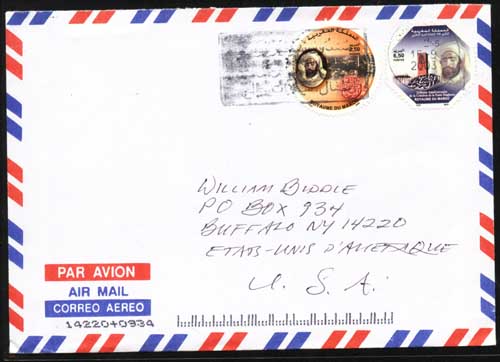 المملكة المغربية
ROYAUME DU MAROC
المملكة المغربية
6,50
ROYAUME DU MAROC
WILLIAM BIDDLE
PO BOX 934
BUFFALO NY 14220
ETATS-UNIS D'AMERIQUE
U. S. A.
PAR AVION
AIR MAIL
CORREO AEREO
14220+0934